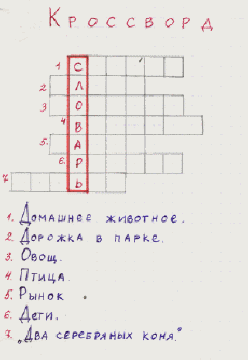 Кроссворд
1 С
2 Л
3 О
4 В
5. А
6. Р
7. Ь
1. Домашнее животное.
2. Дорожка в парке.
3. Овощ.
4. Птица.
5. Рынок
6. Дети.
7. „Два серебряных коня."